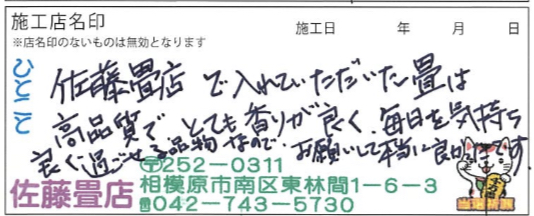 施工店名印
※店名印のないものは無効となります
施工日 年 月 日
ひとこと
佐藤畳店で入れていただいた畳は
高品質でとても香りが良く、毎日を気持ち
良く過ごせる品物なので、お願いして本当に良かったです。
〒252-0311
佐藤畳店
相模原市南区東林間1-6-3
☎042-743-5730